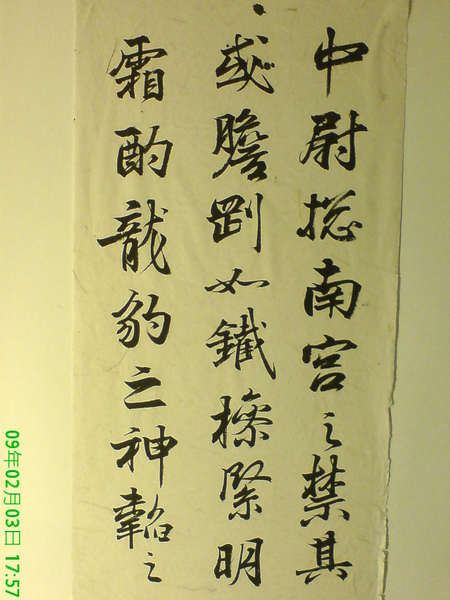 中尉捴南宮之禁其
或膽㓻如鐵操緊明
霜酌龍豹之神韜之
09年02月03日 17:57